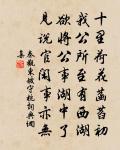 十里荷花菡萏初
我公所至有西湖
欲將公事湖中了
見說官閑事亦無
秦觀東坡守杭詞典調
集